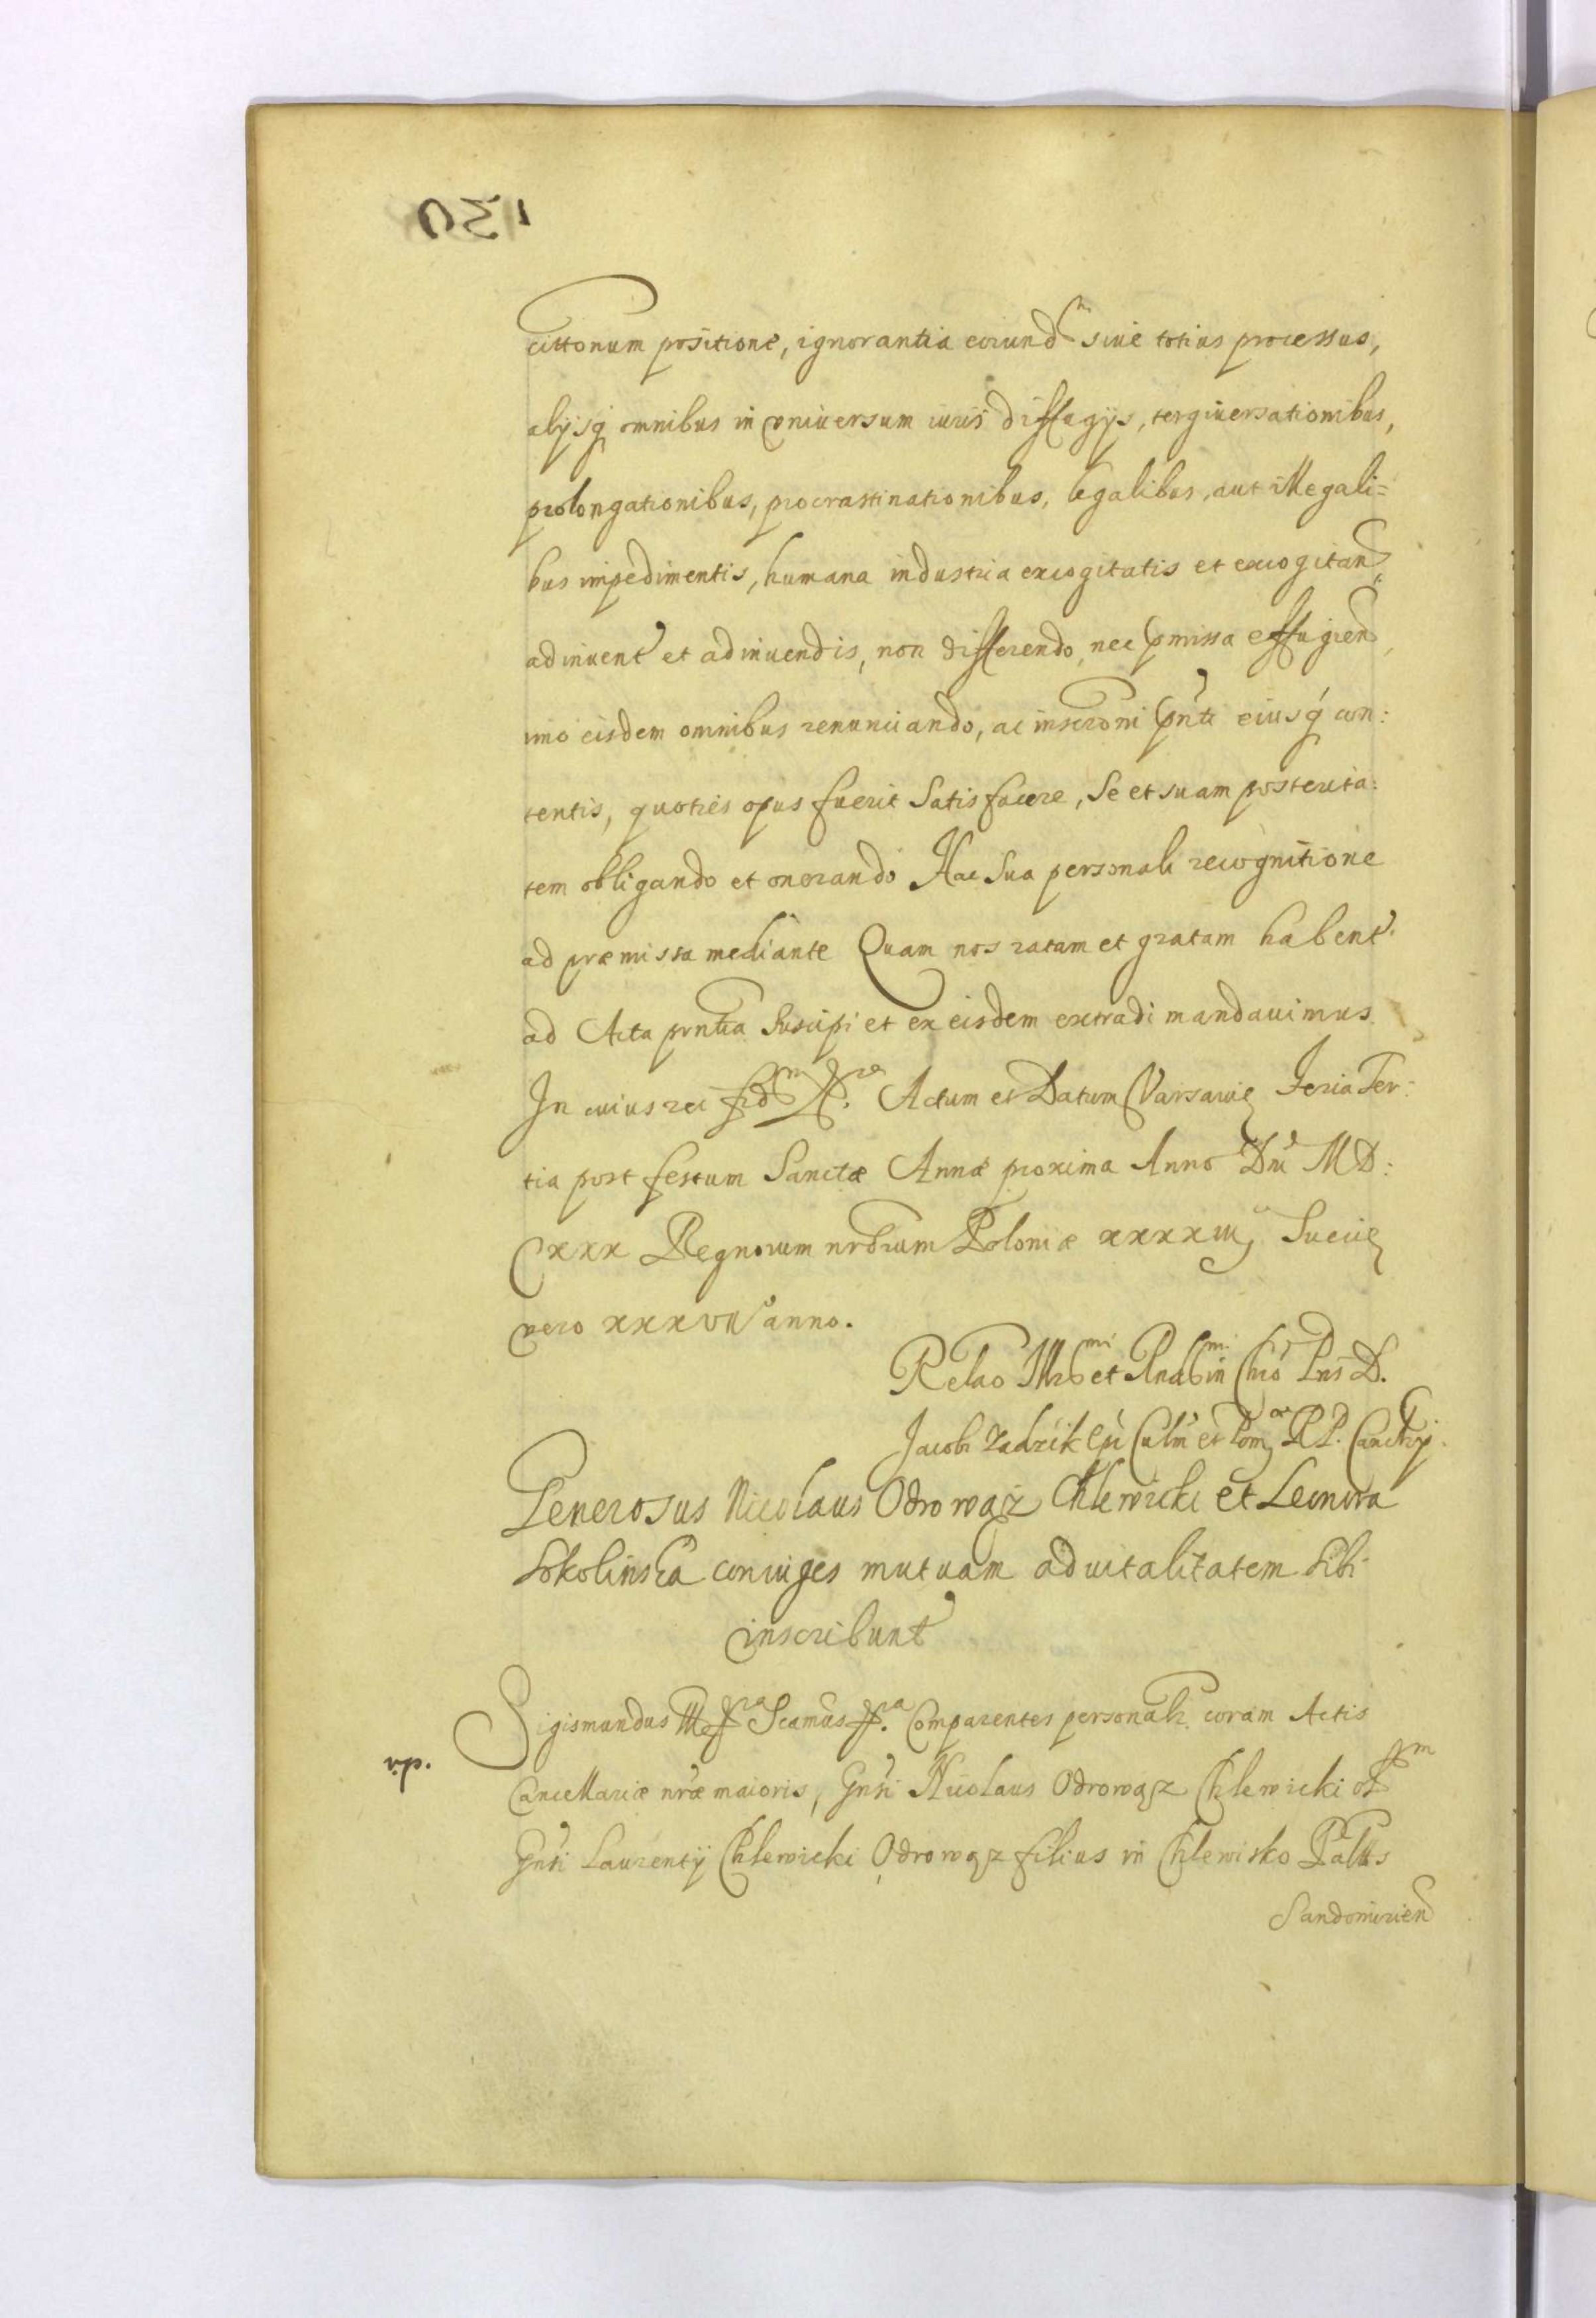 130
cittonum positione, ignorantia eorundm siue totius processus,
alijsq omnibus in vniuersum iuris diffugijs, tergiuersationibus,
prolongationibus, procrastinationibus, legalibus, aut illegali=
bus impedimentis, humana industria excogitatis et excogitand
adinuent et adinuendis, non differendo, nec pmissa effugiend
imo eisdem omnibus renunciando, ac inscroni pnti eiusq con:
tentis, quoties opus fuerit Satisfacere, Se et suam posterita:
tem obligando et onerando Hac Sua personali recognitione
ad præmissa mediante Quam nos ratam et gratam habent.
ad Acta pntia Suscipi et ex eisdem extradi mandauimus
In cuius rei fidm Actum et Datum Varsauię Feria Ter:
tia post festum Sanctæ Annæ proxima Anno Dni MD:
CXXX Regnorum nrorum Poloniæ xxxxiij Suecię
vero xxxvii anno.
Relao Illrmi et Rndmi in Chro Pris D.
Jacobi Zadzik Epi Culm et Pom RP. Cancrij.
Generosus Nicolaus Odrowąż Chlewicki et Leonora
Sokolinska coniuges mutuam aduitalitatem Sibi
inscribunt
Sigismundus III Comparentes personalr coram Actis
Cancellariæ nræ maioris, Gnsi Nicolaus Odrowąz Chlewicki olm
Gnsi Laurentij Chlewicki Odrowąz filius in Chlewisko Pallus
Sandomirien